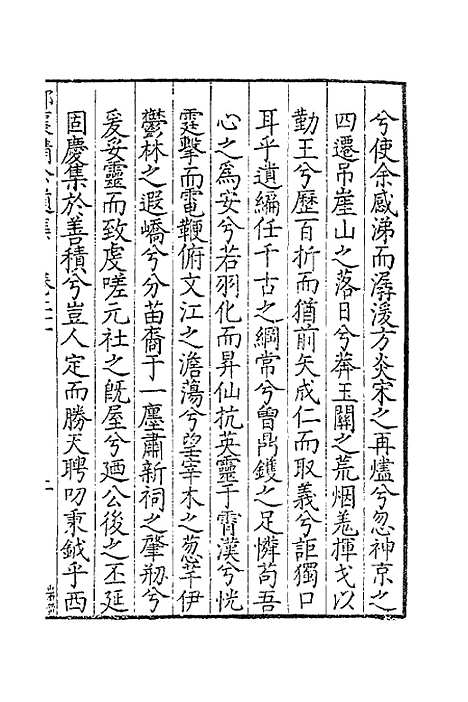 兮使余感涕而潺湲方炎宋之再燼兮忽神京之
四遷吊崖山之落日兮莽玉關之荒烟羗揮戈以
勤王兮歷百折而猶前矢成仁而取義兮詎獨口
耳乎遺編任千古之綱常兮曾鼎鑊之足憐苟吾
心之爲安兮若羽化而昇仙抗英靈于霄漢兮恍
霆擊而電鞭俯文江之澹蕩兮望宰木之葱芊伊
鬱林之遐嶠兮分苗裔于一廛肅新祠之肇刱兮
爰妥靈而致虔嗟元社之旣屋兮廼公後之丕延
固慶集於善積兮豈人定而勝天聘叨秉鉞乎西